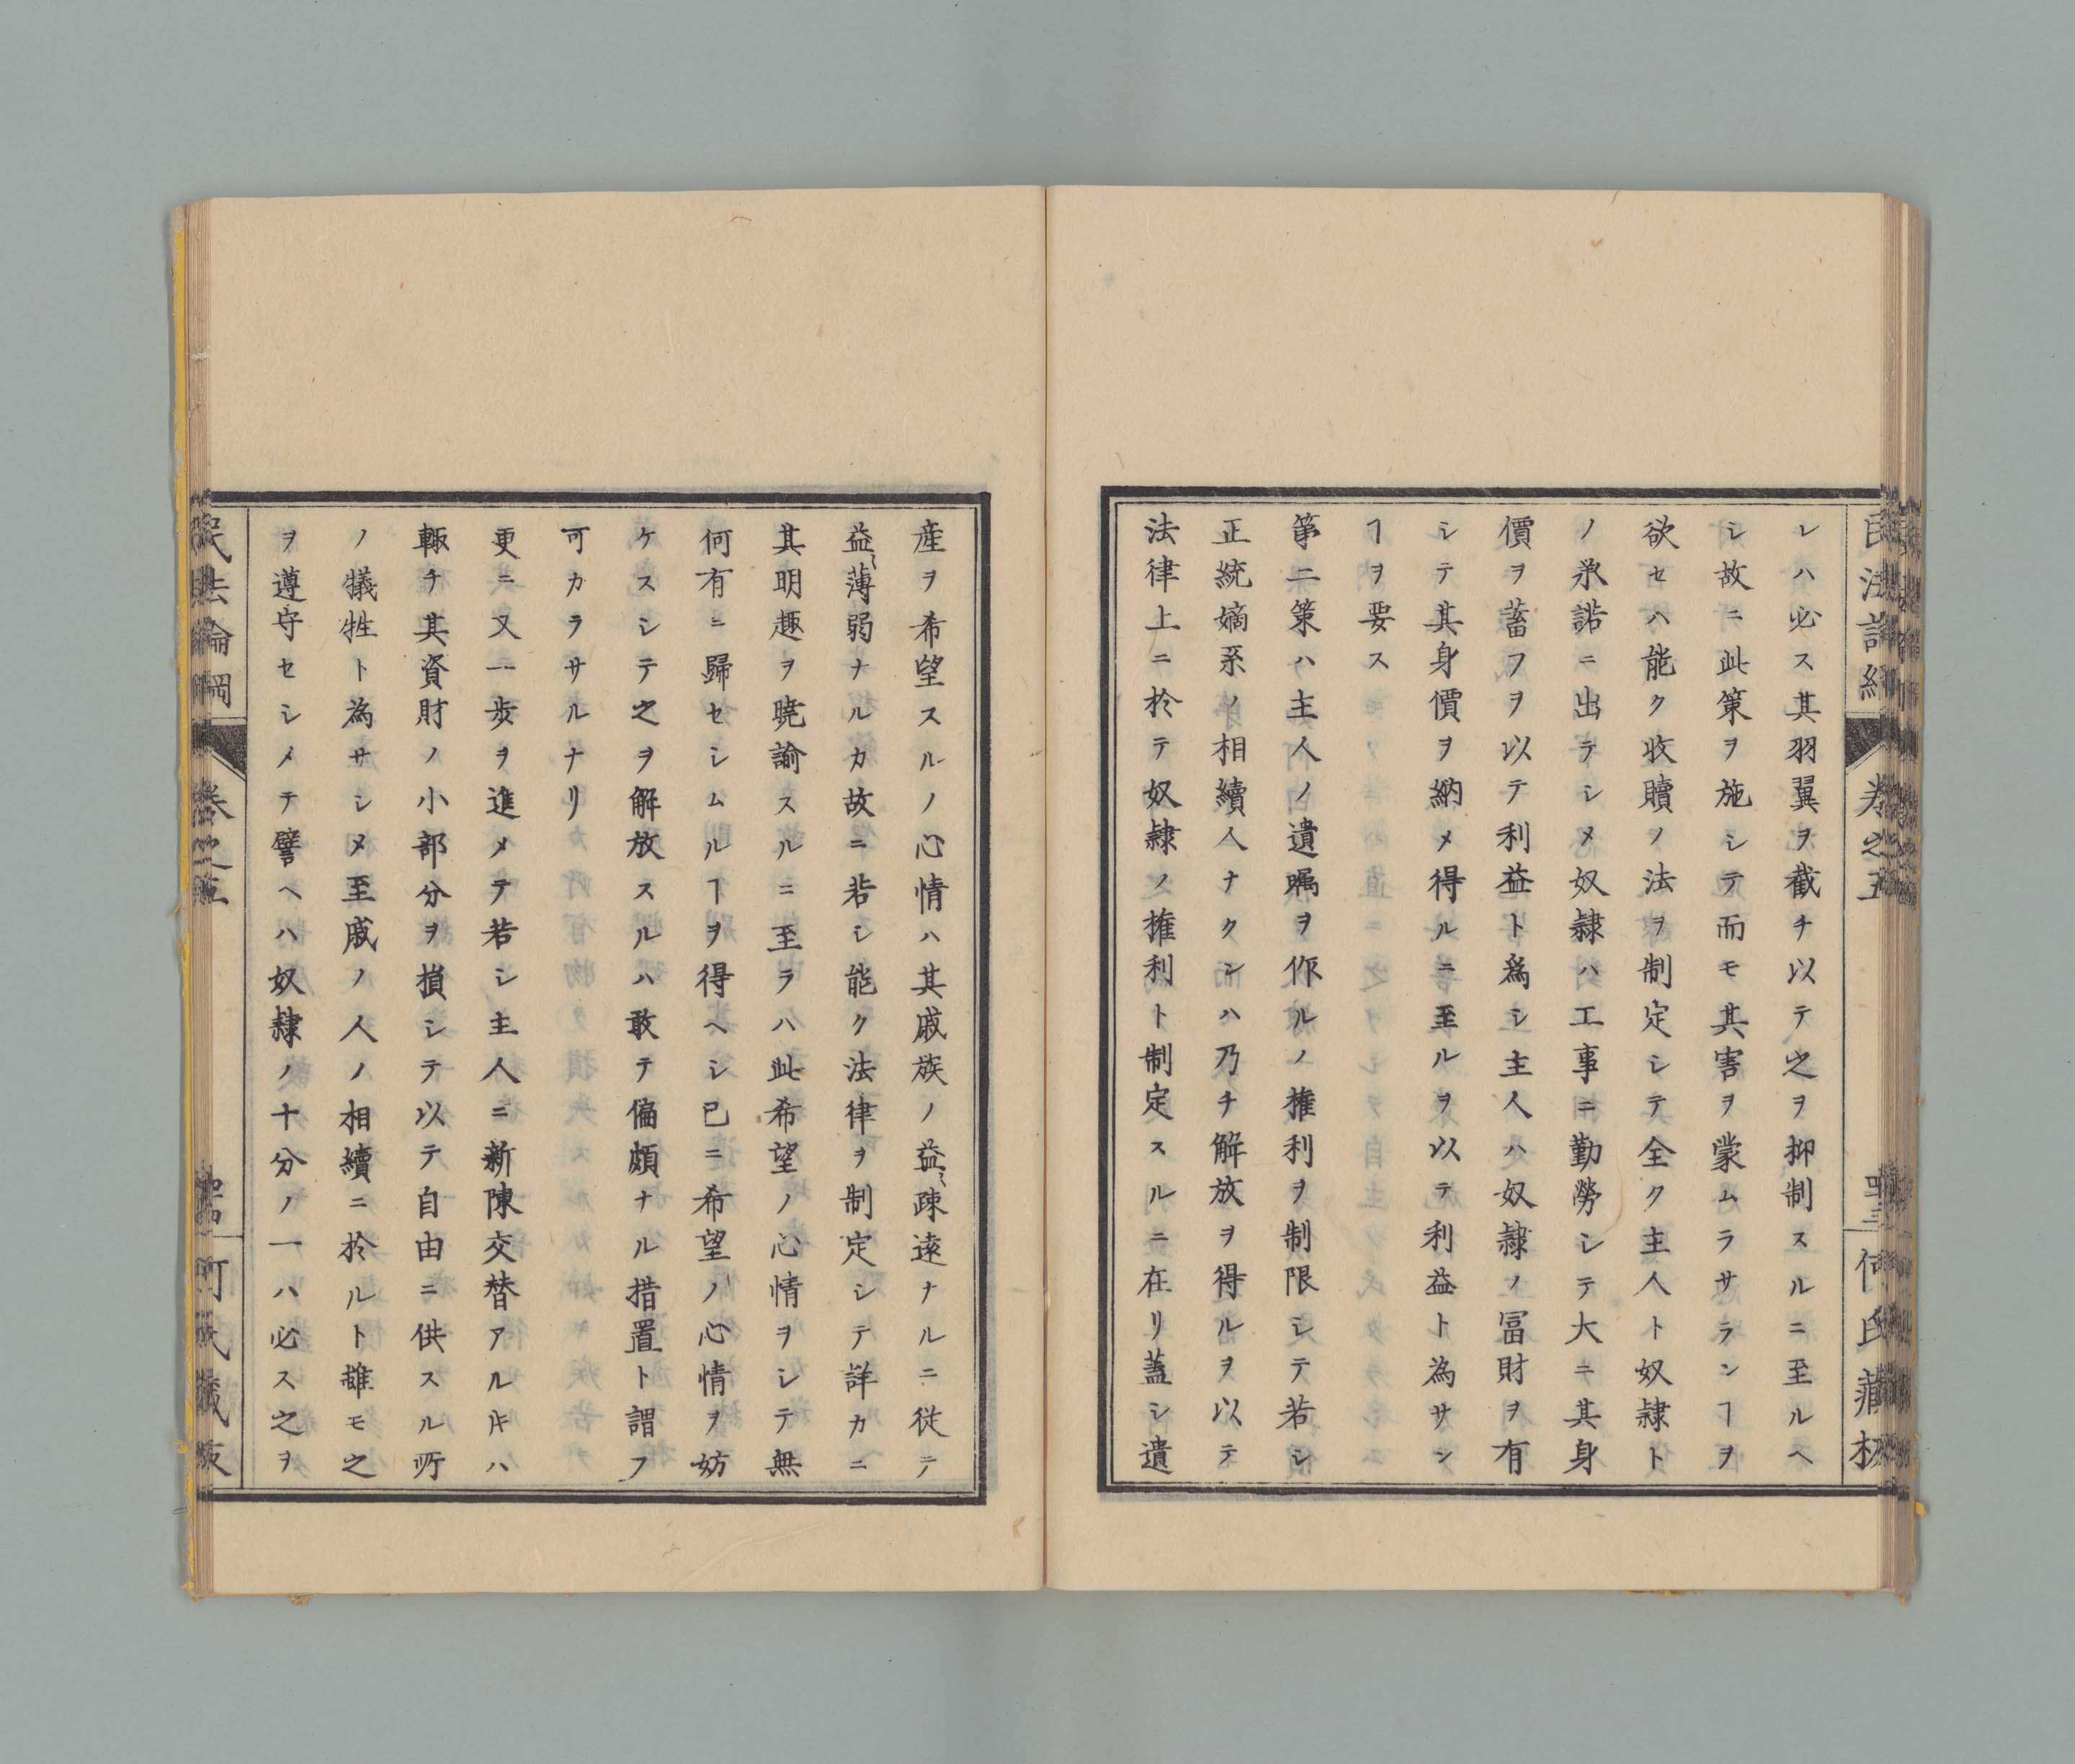 民法論綱 卷之五 四十三 何氏藏板
レハ必ス其羽翼ヲ截チ以テ之ヲ抑制スルニ至ルヘ
シ故ニ此策ヲ施シテ而モ其害ヲ蒙ムラサランヿヲ
欲セハ能ク收贖ノ法ヲ制定シテ全ク主人ト奴隷ト
ノ承諾ニ出テシメ奴隷ハ工事ニ勤勞シテ大ニ其身
價ヲ蓄フヲ以テ利益ト爲シ主人ハ奴隷ノ冨財ヲ有
シテ其身價ヲ納メ得ルニ至ルヲ以テ利益ト為サン
ヿヲ要ス
第二策ハ主人ノ遺囑ヲ作ルノ權利ヲ制限シテ若シ
正統嫡系ノ相續人ナクンハ乃チ解放ヲ得ルヲ以テ
法律上ニ於テ奴隷ノ權利ト制定スルニ在リ蓋シ遺
産ヲ希望スルノ心情ハ其戚族ノ益〻疎遠ナルニ從テ
益〻薄弱ナルカ故ニ若シ能ク法律ヲ制定シテ詳カニ
其明趣ヲ曉諭スルニ至ラハ此希望ノ心情ヲシテ無
何有ニ歸セシムルヿヲ得ヘシ已ニ希望ノ心情ヲ妨
ケスシテ之ヲ解放スルハ敢テ偏頗ナル措置ト謂フ
可カラサルナリ
更ニ又一歩ヲ進メテ若シ主人ニ新陳交替アル𪜈ハ
輙チ其資財ノ小部分ヲ損シテ以テ自由ニ供スル所
ノ犠牲ト為サシメ至戚ノ人ノ相續ニ於ルト雖モ之
ヲ遵守セシメテ譬ヘハ奴隷ノ十分ノ一ハ必ス之ヲ
民法論綱 卷之五 何氏藏版